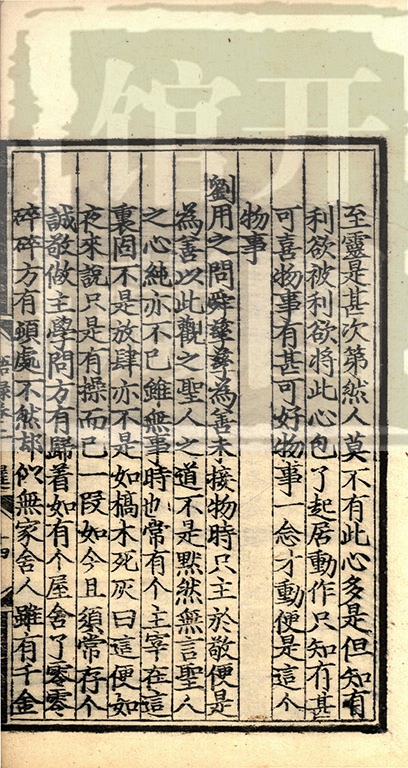 至靈是甚次第然人莫不有此心多是但知有
利欲被利欲將此心包了起居動作只知有甚
可喜物事有甚可好物事一念才動便是這个
物事
劉用之問舜孳孳為善未接物時只主於敬便是
為善以此觀之聖人之道不是默然無言聖人
之心純亦不已雖無事時也常有个主宰在這
裏固不是放肆亦不是如槁木死灰曰這便如
夜來說只是有操而已一段如今且須常存个
誠敬做主學問方有歸着如有个屋舍了零零
碎碎方有頓處不然却似無家舍人雖有千金